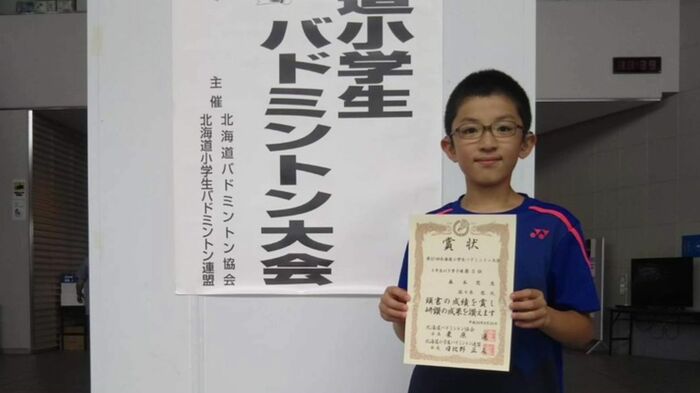 道小学生
バドミントン大会
主催 北海道バドミントン協会
北海道小学生バドミントン連盟
13:39
YONEX
賞状
頭書の成績を賞し
研鑽の成果を讃えます
北海道バドミントン協会
北海道小学生バドミントン連盟